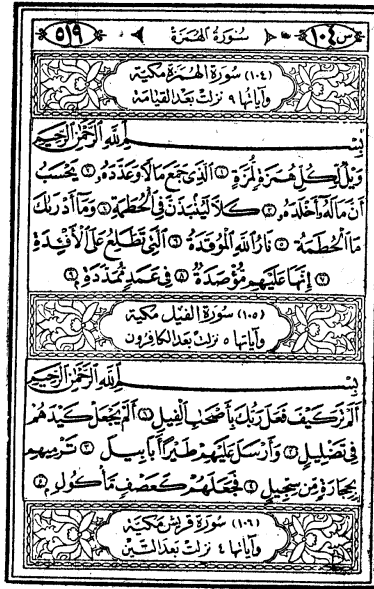 س ١٠٤ سُورَةُ الهُمَزَة ٥١٩
(١٠٤) سُورَةُ الهُمَزَةِ مَكِيَّة
وَآيَاتُهَا ٩ نَزَلَتْ بَعْدَ القِيَامَة
بِسْمِ ٱللَّهِ ٱلرَّحْمَٰنِ ٱلرَّحِيمِ
وَيْلٌ لِّكُلِّ هُمَزَةٍ لُّمَزَةٍ ١ ٱلَّذِى جَمَعَ مَالًا وَعَدَّدَهُۥ ٢ يَحْسَبُ
أَنَّ مَالَهُۥٓ أَخْلَدَهُۥ ٣ كَلَّا لَيُنۢبَذَنَّ فِى ٱلْحُطَمَةِ ٤ وَمَآ أَدْرَىٰكَ
مَا ٱلْحُطَمَةُ ٥ نَارُ ٱللَّهِ ٱلْمُوقَدَةُ ٦ ٱلَّتِى تَطَّلِعُ عَلَى ٱلْأَفْـِٔدَةِ
٧ إِنَّهَا عَلَيْهِم مُّؤْصَدَةٌ ٨ فِى عَمَدٍ مُّمَدَّدَةٍۭ ٩
(١٠٥) سُورَةُ الفِيلِ مَكِيَّة
وَآيَاتُهَا ٥ نَزَلَتْ بَعْدَ الكَافِرُون
بِسْمِ ٱللَّهِ ٱلرَّحْمَٰنِ ٱلرَّحِيمِ
أَلَمْ تَرَ كَيْفَ فَعَلَ رَبُّكَ بِأَصْحَٰبِ ٱلْفِيلِ ١ أَلَمْ يَجْعَلْ كَيْدَهُمْ
فِى تَضْلِيلٍ ٢ وَأَرْسَلَ عَلَيْهِمْ طَيْرًا أَبَابِيلَ ٣ تَرْمِيهِم
بِحِجَارَةٍ مِّن سِجِّيلٍ ٤ فَجَعَلَهُمْ كَعَصْفٍ مَّأْكُولٍۭ ٥
(١٠٦) سُورَةُ قُرَيْشٍ مَكِيَّة
وَآيَاتُهَا ٤ نَزَلَتْ بَعْدَ التِّين